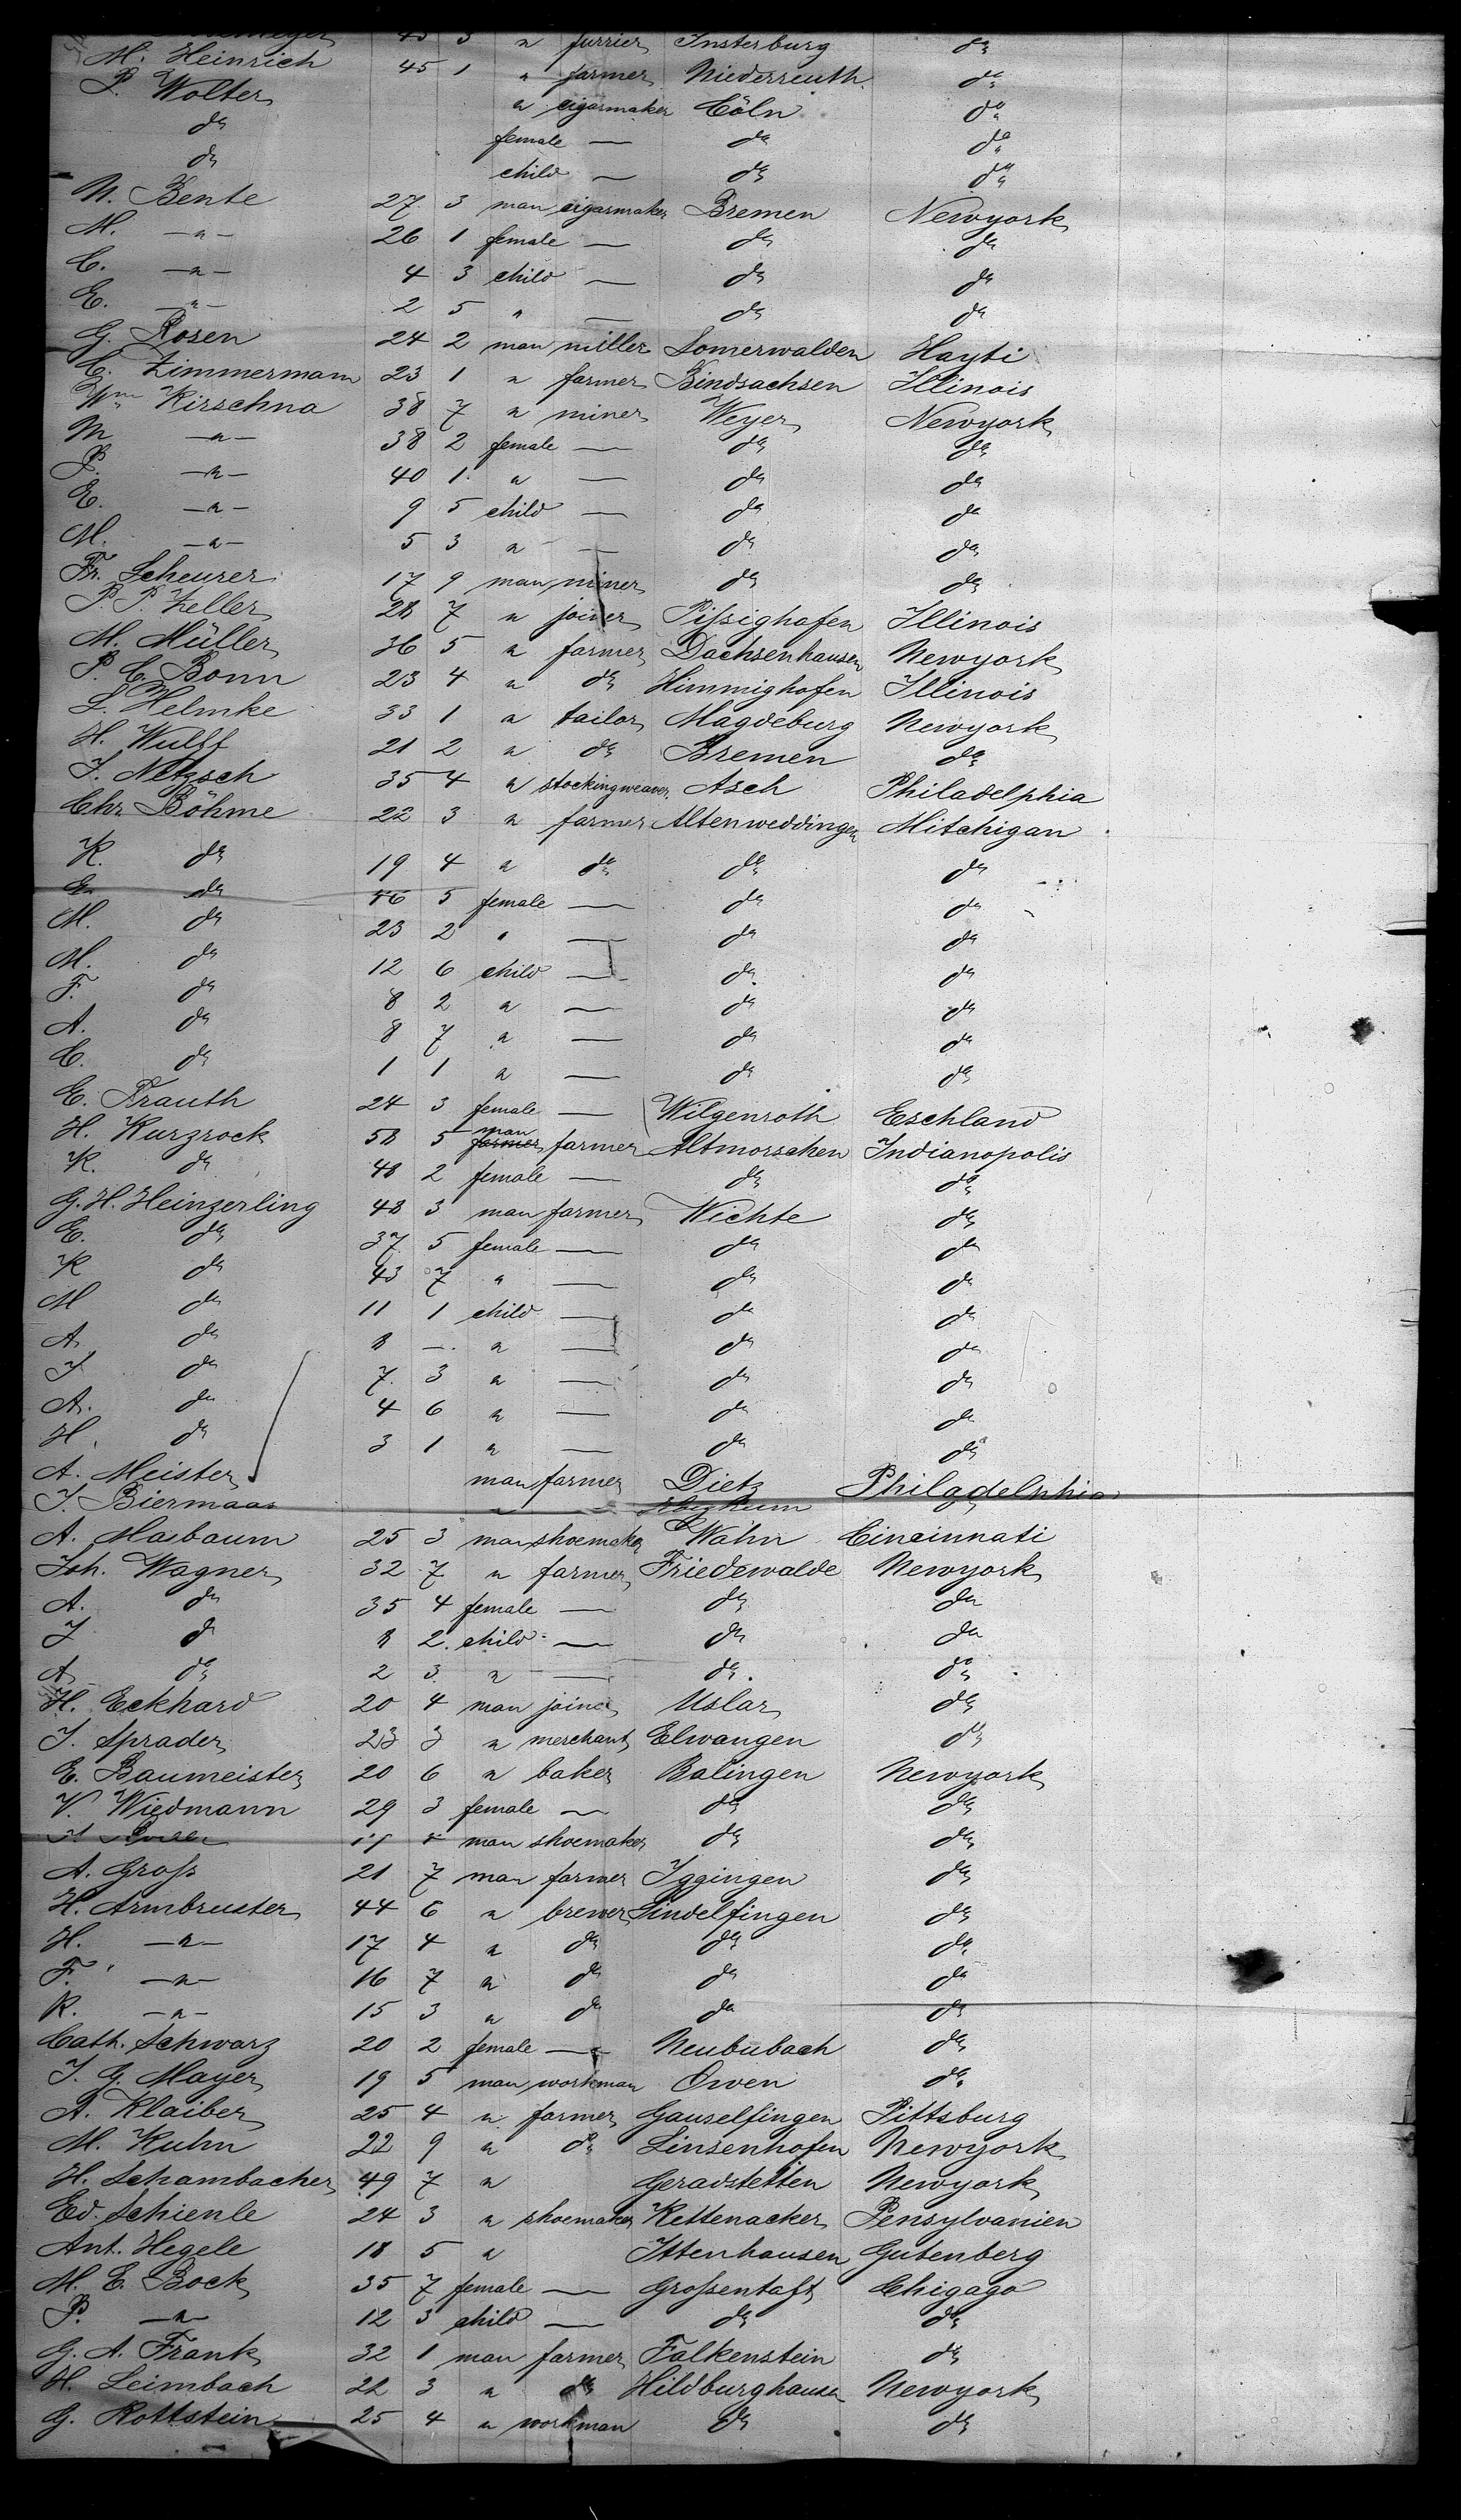 45 3 " furrier Insterburg do
M. Heinrich 45 1 " farmer Niederreuth do
P. Wolter " cigarmaker Cöln do
do female — do do
do child — do do
N. Bente 27 3 man cigarmaker Bremen Newyork
M. —"— 26 1 female — do do
C. —"— 4 3 child — do do
E. —"— 2 5 " — do do
G. Rosen 24 2 man miller Somerwalden Hayti
C. Zimmermann 23 1 " farmer Bindsachsen Illinois
Wm Kirschna 38 7 " miner Weyer Newyork
M —"— 38 2 female — do do
P. —"— 40 1 " — do do
E. —"— 9 5 child — do do
M. —"— 5 3 " — do do
Fr. Scheurer 17 9 man miner do do
P. P. Zeller 28 7 " joiner Pissighofen Illinois
M. Müller 36 5 " farmer Dachsenhausen Newyork
P. C. Bonn 23 4 " do Himmighofen Illinois
L. Helmke 33 1 " tailor Magdeburg Newyork
H. Wulff 21 2 " do Bremen do
J. Netzsch 35 4 " stockingweaver Asch Philadelphia
Chr. Böhme 22 3 " farmer Altenweddingen Mitchigan
K. do 19 4 " do do do
E do 46 5 female — do do
M. do 23 2 " — do do
M. do 12 6 child — do do
F. do 8 2 " — do do
A. do 8 7 " — do do
C. do 1 1 " — do do
E. Trauth 24 3 female — Wilgenroth Eschland
H. Kurzrock 58 5 man farmer farmer Altmorschen Indianopolis
K. do 48 2 female — do do
G. H. Heinzerling 48 3 man farmer Wichte do
E. do 37 5 female — do do
K do 43 7 " — do do
M do 11 1 child — do do
A. do 8 — " — do do
J do 7 3 " — do do
A. do 4 6 " — do do
H. do 3 1 " — do do
A. Meister man farmer Dietz Philadelphia
J. Biermaas
A. Maibaum 25 3 man shoemaker Wahn Cincinnati
Joh. Wagner 32 7 " farmer Friedewalde Newyork
A. do 35 4 female — do do
J do 8 2 child — do do
A. do 2 3 " — do do
H. Eckhard 20 4 man joiner Uslar do
J. Sprader 23 3 " merchant Elwangen do
E. Baumeister 20 6 " baker Balingen Newyork
V. Wiedmann 29 3 female — do do
man shoemaker do do
A. Groß 21 7 man farmer Iggingen do
H. Armbruster 44 6 " brewer Sindelfingen do
H. —"— 17 4 " do do do
F. —"— 16 7 " do do do
R. —"— 15 3 " do do do
Cath. Schwarz 20 2 female — Neububach do
J. G. Mayer 19 5 man workman Owen do
A. Klaiber 25 4 " farmer Gauselfingen Pittsburg
M. Kuhn 22 9 " do Linsenhofen Newyork
H. Schambacher 49 7 " Geradstetten Newyork
Ed. Schienle 24 3 " shoemaker Kettenacker Pensylvanien
Ant. Hegele 18 5 " Ittenhausen Gutenberg
M. E. Bock 35 7 female — Großentaft Chigago
P. —"— 12 3 child — do do
G. A. Frank 32 1 man farmer Falkenstein do
H. Leimbach 22 3 " do Hildburghausen Newyork
G. Rottstein 25 4 " workman do do